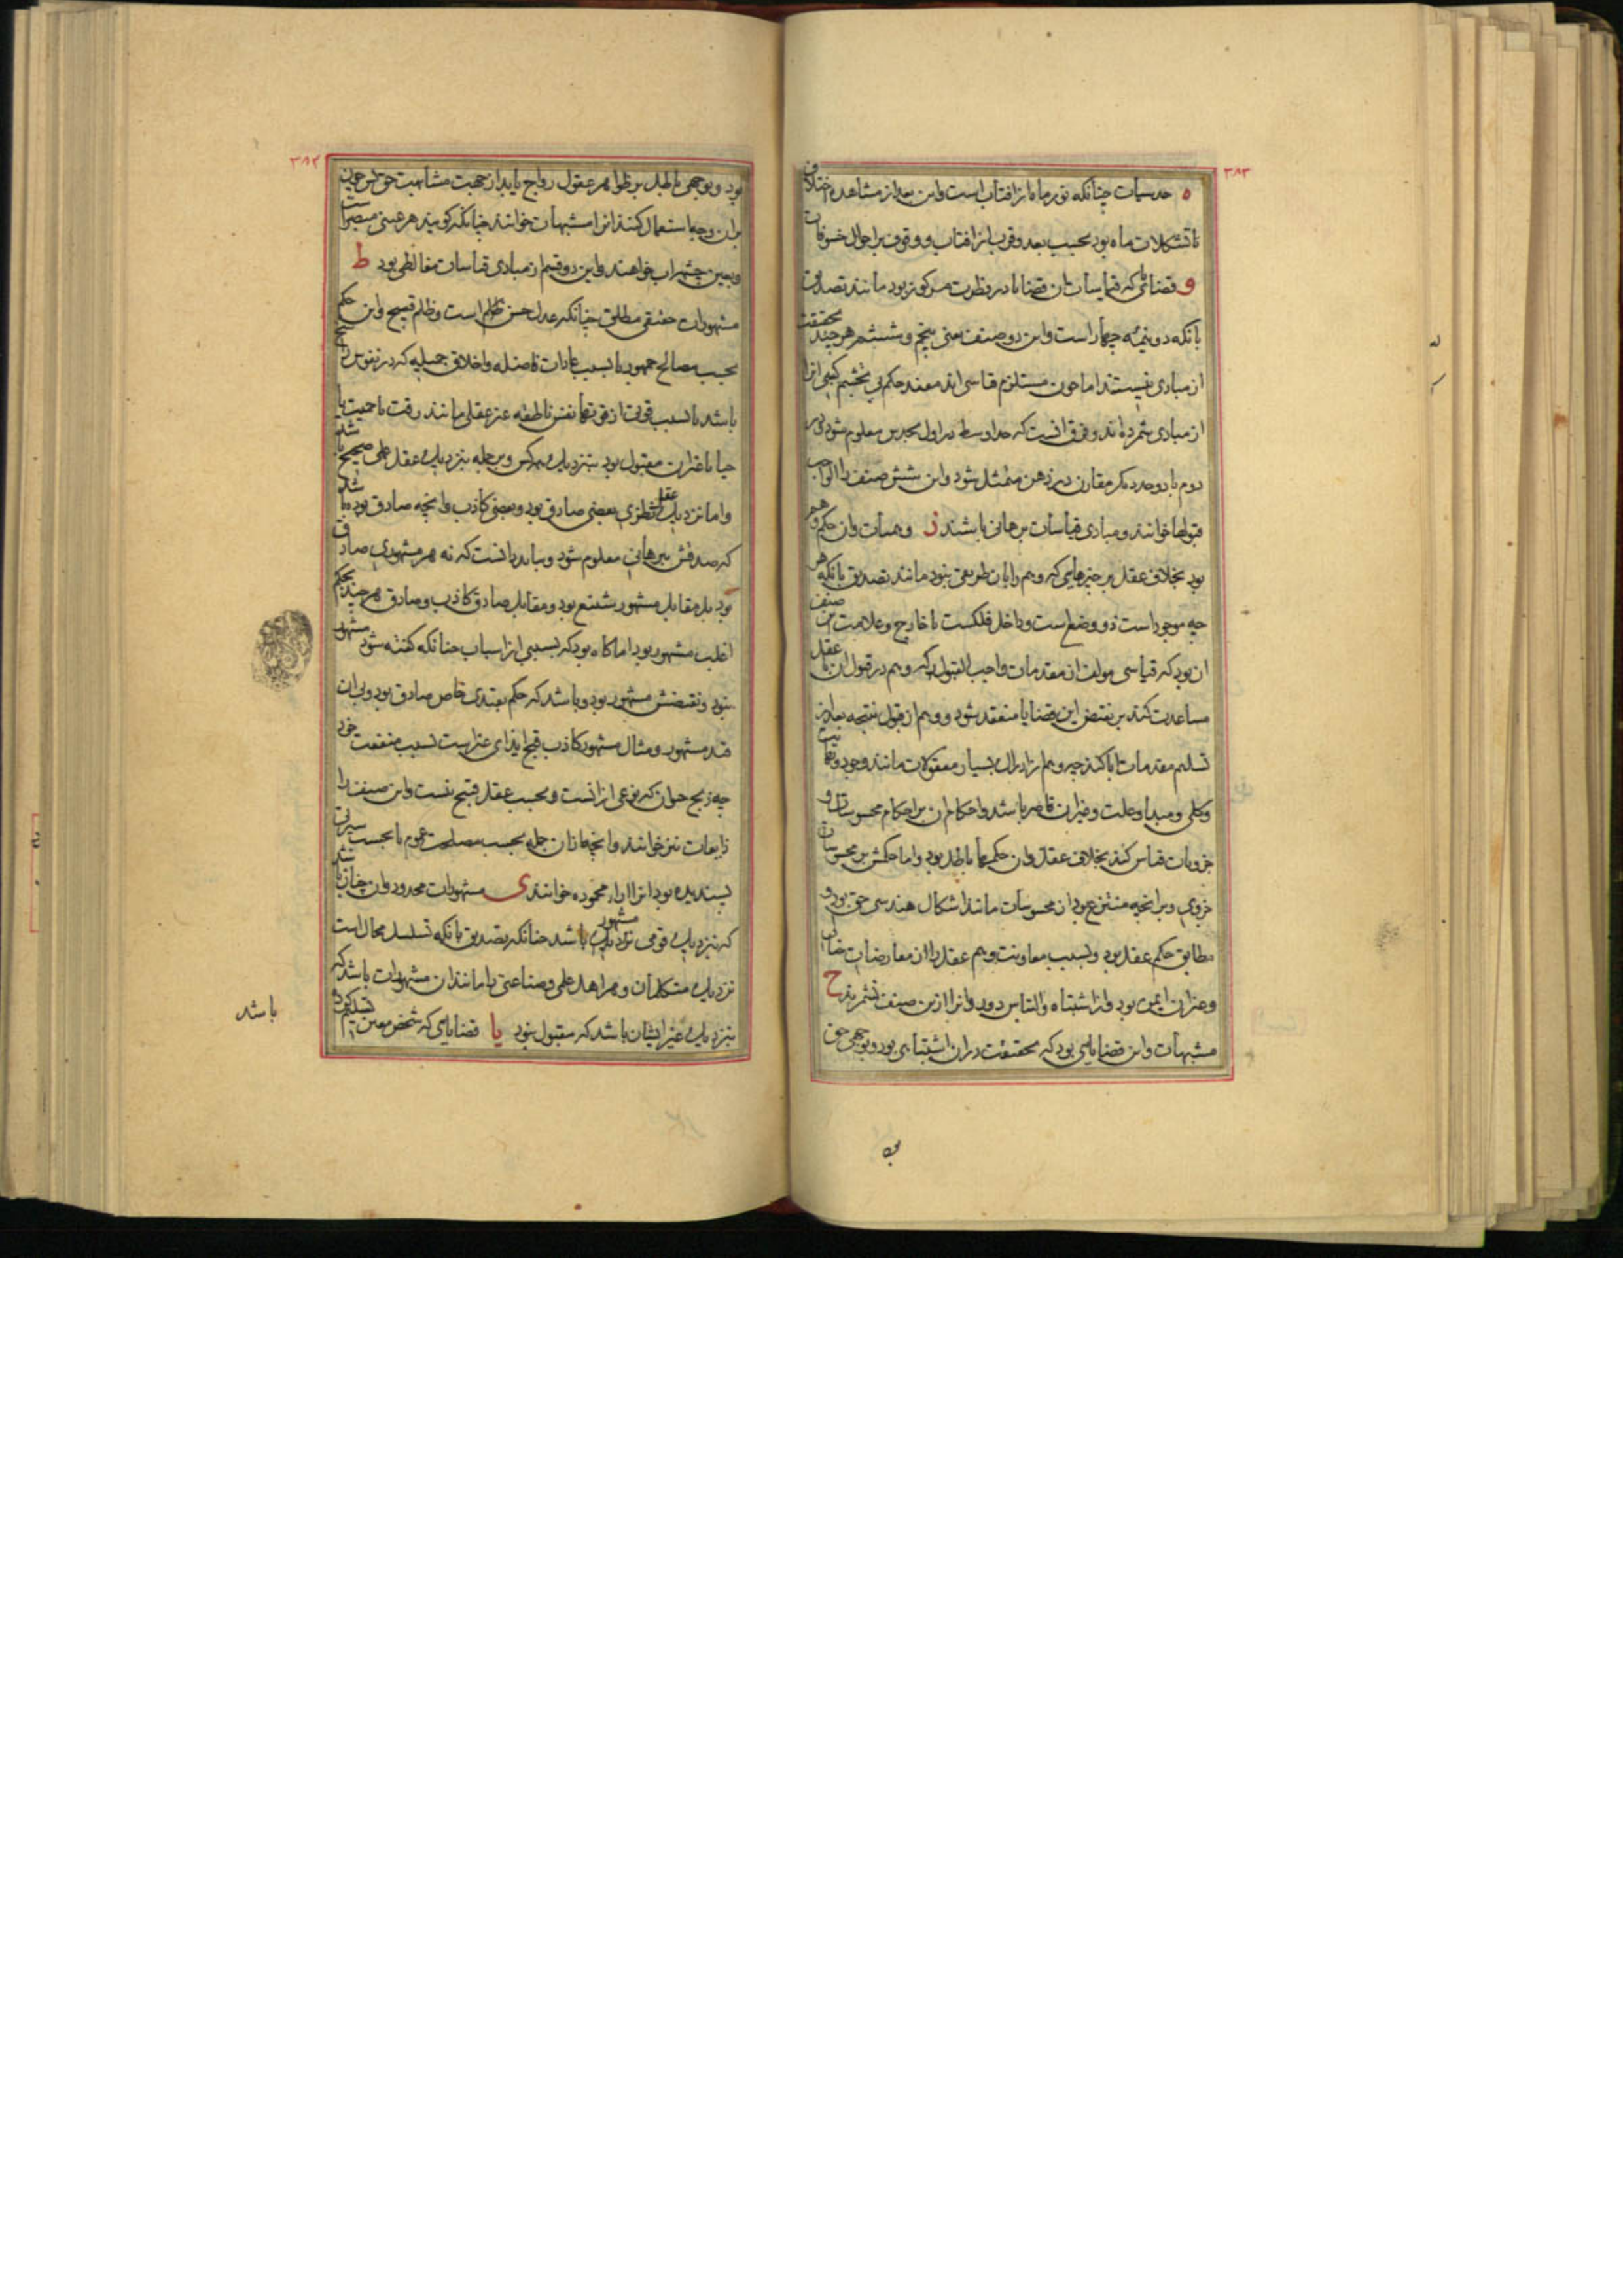 ۳۸۳
ه حدسیات چنانکه نور ماه از افتاب است و این بعد از مشاهده اختلاف
تشکلات ماه بود بحسب بعد و قرب از افتاب و وقوف بر احوال خسوفات
و قضائی که قیاسات ان قضایا در فطرت مرکوز بود مانند تصدیق
بانکه دو نیمه چهار است و این دو صنف یعنی پنجم و ششم هر چند بحقیقت
از مبادی نیستند اما چون مستلزم قیاسی اند مفید حکم بی تجشم کسبی انرا
از مبادی شمرده اند و فرق انست که حد اوسط در اول بحدس معلوم شود و در
دوم با دو حد دیگر مقارن در ذهن متمثل شود و این شش صنف را الواجب
قبولها خوانند و مبادی قیاسات برهانی باشند ز وهمیات و ان حکم وهم
بود بخلاف عقل بر چیزهایی که وهم را بان طریقی نبود مانند تصدیق بانکه هر
چه موجود است ذو وضع است و داخل فلکست یا خارج و علامت این صنف
ان بود که قیاسی مولف از مقدمات واجب القبول که وهم در قبول ان با عقل
مساعدت کند بر نقیض این قضایا منعقد شود و وهم از قبول نتیجه بعد از
تسلیم مقدمات ابا کند چه وهم از ادراک بسیار معقولات مانند وجود و وحدت
و کلی و مبدا و علت و غیر ان قاصر باشد و احکام ان بر احکام محسوسات و
جزویات قیاس کند بخلاف عقل و ان حکمها باطل بود و اما حکمش بر محسوسات
جزوی و بر انچه منتزع بود از محسوسات مانند اشکال هندسی حق بود و
مطابق حکم عقل بود و بسبب معاونت وهم عقل را از معارضات خیالی
و غیر ان ایمن بود و از اشتباه و التباس دور و انرا ازین صنف نشمرند ح
مشبهات و این قضایایی بود که بحقیقت در ان اشتباهی بود و بوجهی حق
۳۸۴
بود و بوجهی باطل بر ظواهر عقول رواج یابد از جهت مشابهت حق چون
بران وجه استعمال کنند انرا مشبهات خوانند چنانکه گویند هر عینی مبصر است
و بعین چشمه اب خواهند و این دو قسم از مبادی قیاسات مغالطی بود ط
مشهورات حقیقی مطلق چنانکه عدل حسن است و ظلم قبیح و این حکم
بحسب مصالح جمهور یا بسبب عادات فاضله و اخلاق جمیله که در نفوس راسخ
باشد یا بسبب قوتی از قوتهای نفس ناطقه غیر عقلی مانند رقت یا حمیت یا
حیا یا غیر ان مقبول بود بنزدیک همه کس و بر جمله بنزدیک عقل عملی صحیح باشد
و اما نزدیک عقل نظری بعضی صادق بود و بعضی کاذب و انچه صادق بود باشد
که صدقش ببرهانی معلوم شود و بباید دانست که نه هر مشهوری صادق
بود بل مقابل مشهور شنیع بود و مقابل صادق کاذب و صادق هر چند بحکم
اغلب مشهور بود اما گاه بود که بسببی از اسباب چنانکه گفته شود مشهور
نبود و نقیضش مشهور بود و باشد که حکم بقیدی خاص صادق بود و بی ان
قید مشهور و مثال مشهور کاذب قبح ایذای غیر است بسبب منفعت خود
چه ذبح حیوان که نوعی از انست و بحسب عقل قبیح نیست و این صنف را
ذایعات نیز خوانند و انچه از ان جمله بحسب مصلحت عموم یا بحسب سیرتی
پسندیده بود انرا اراء محموده خوانند ی مشهورات محدود و ان چنان باشد
که بنزدیک قومی مشهور باشد چنانکه تصدیق بانکه تسلسل محال است
نزدیک متکلمان و هر اهل علمی و صناعتی را مانند ان مشهورات باشد که
بنزدیک غیر ایشان باشد که مقبول نبود یا قضایایی که شخص معین تسلیم کرده
باشد